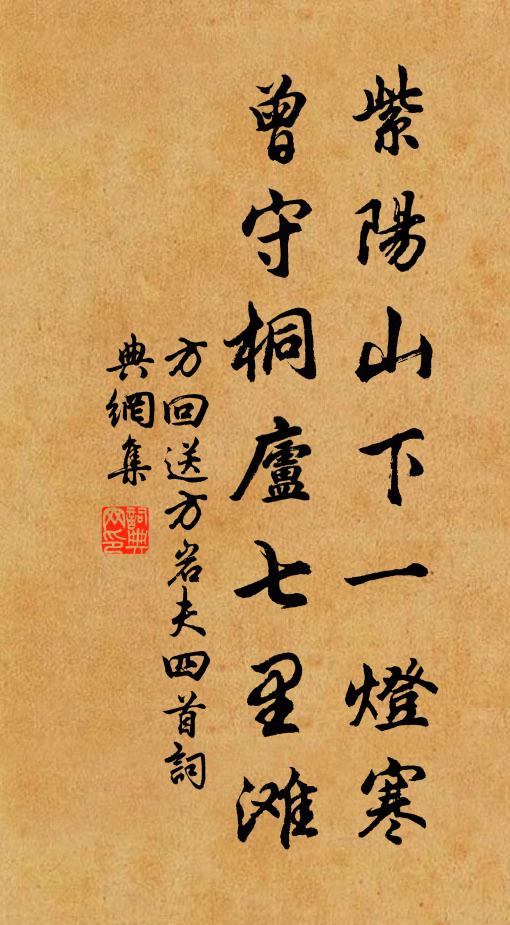 紫陽山下一燈寒
曾守桐廬七里滩
方回送方岩夫四首詞
典網集
詞典网印